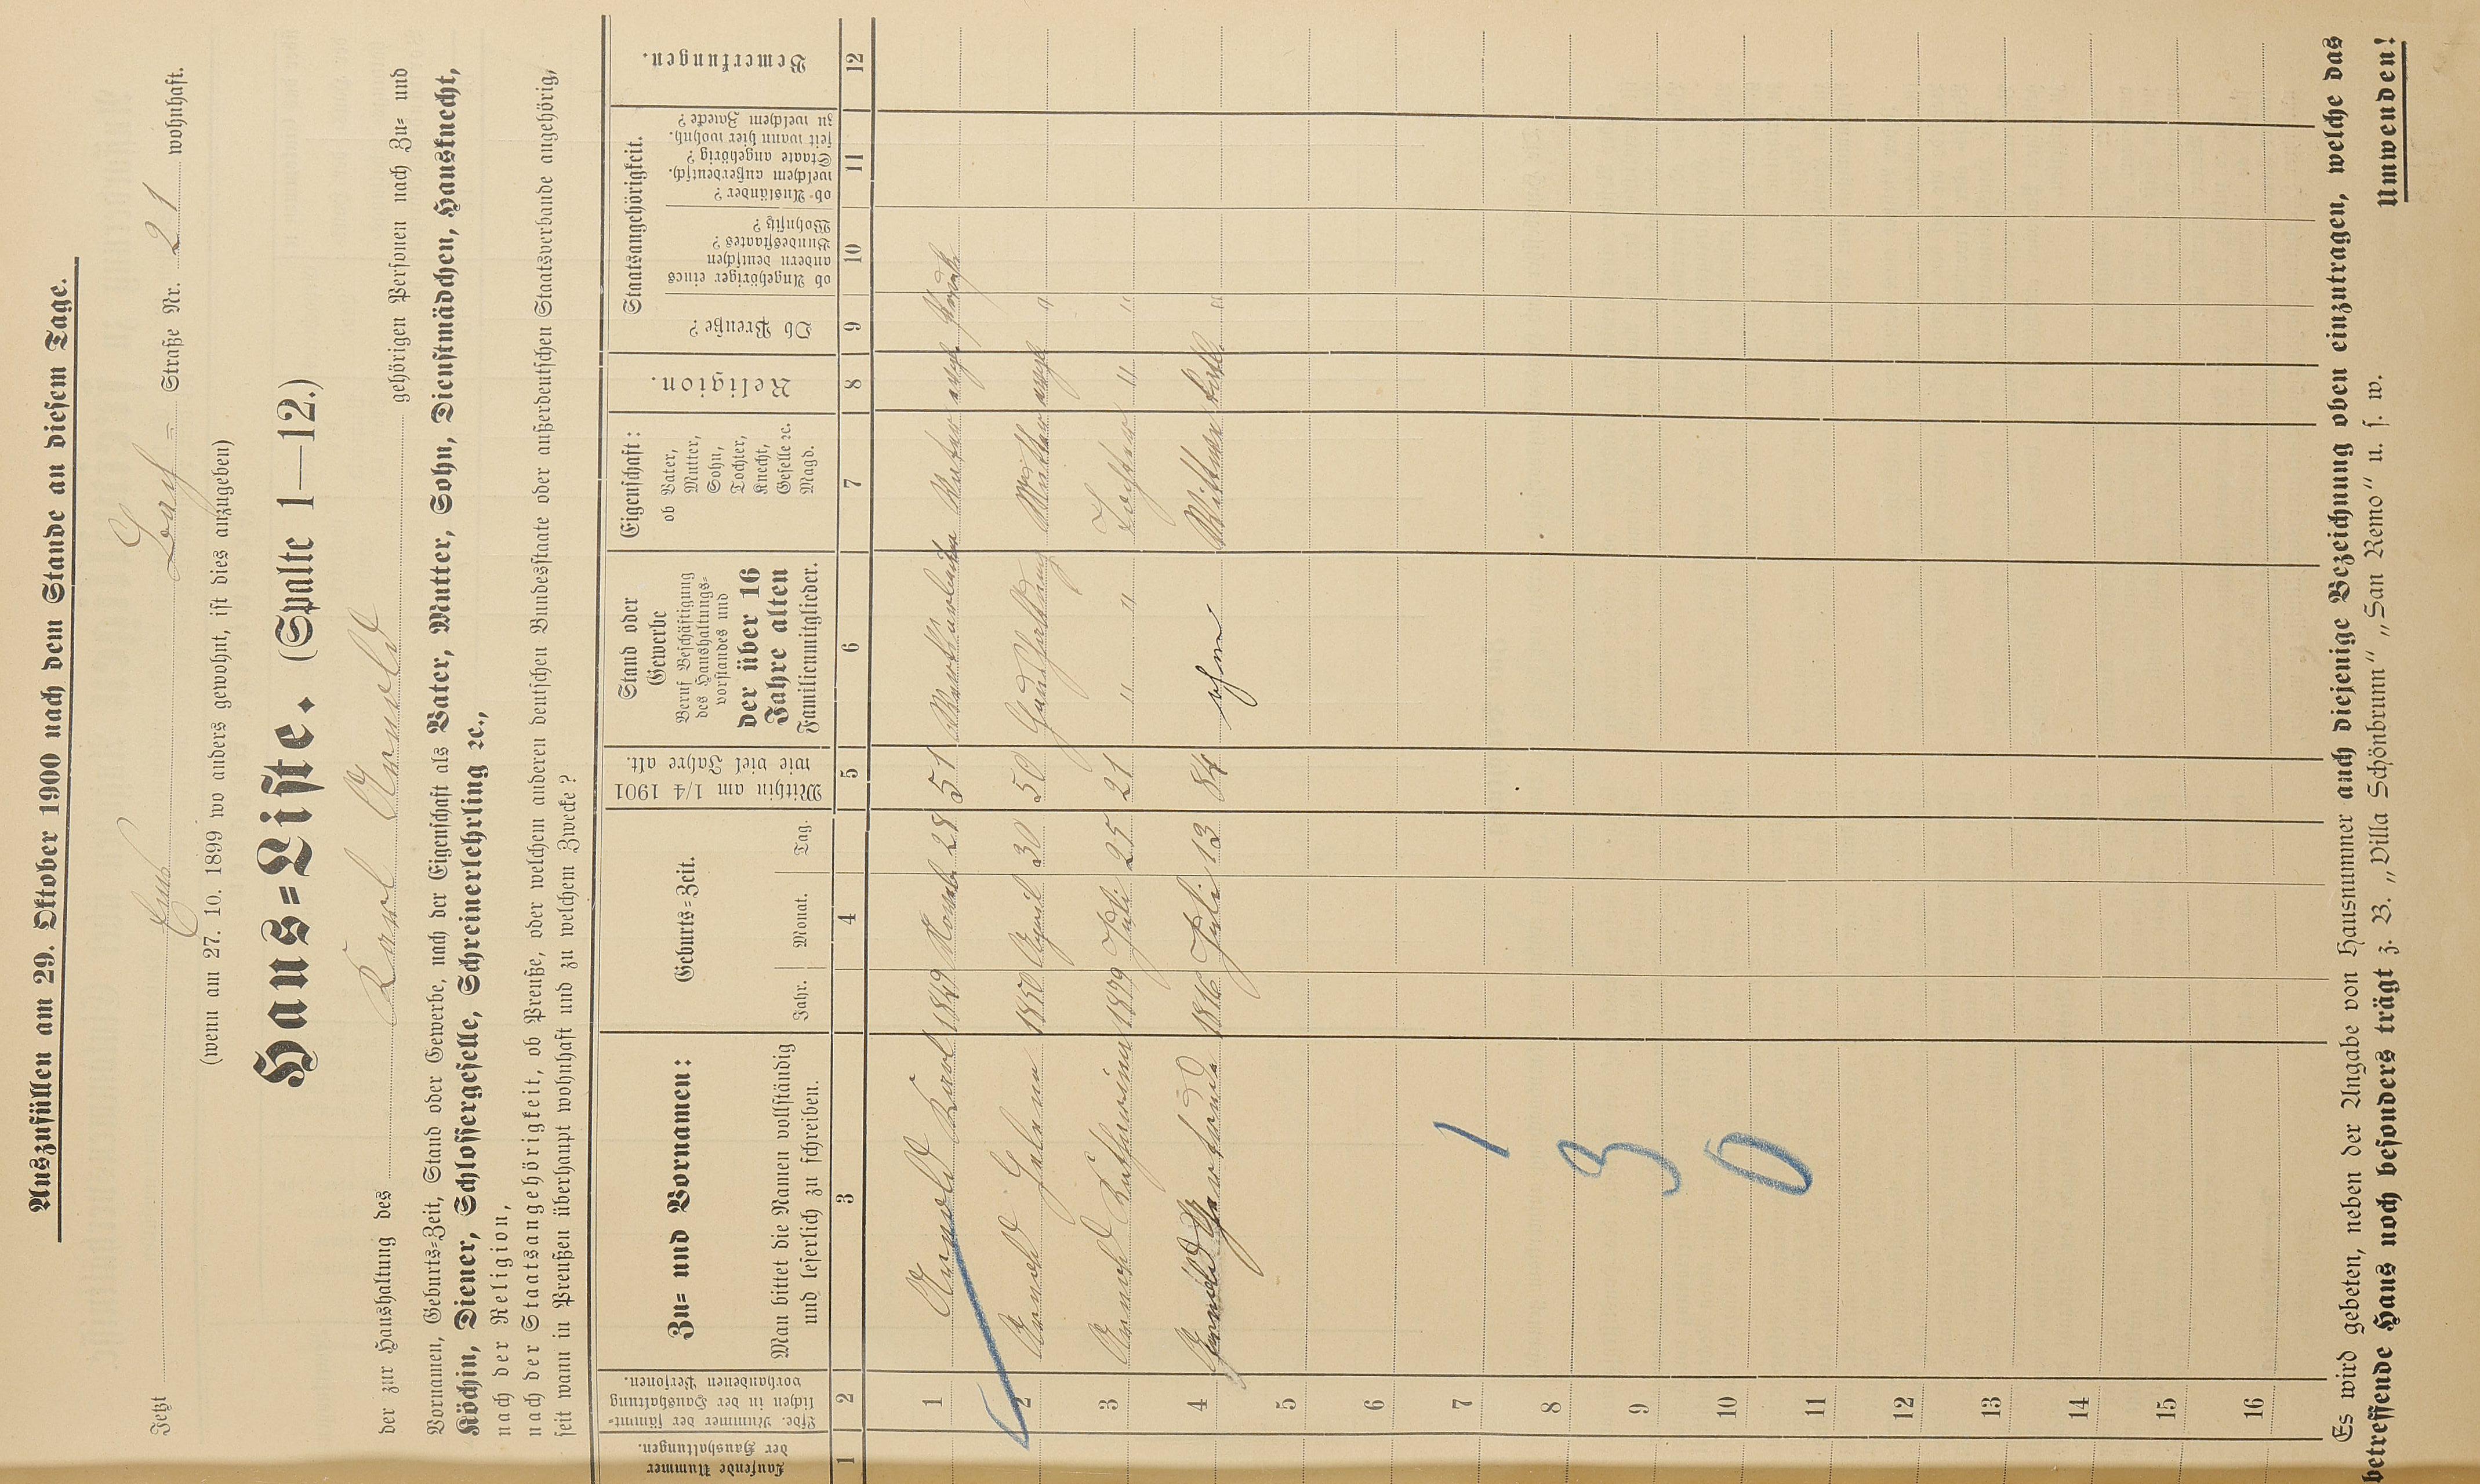 Auszufüllen am 29. Oktober 1900 nach dem Stande an diesem Tage.
Jetzt Ems Straße Nr. 21 wohnhaft.
(wenn am 27. 10. 1899 wo anders gewohnt, ist dies anzugeben)
Haus=Liste. (Spalte 1—12.)
der zur Haushaltung des Karl Arnold gehörigen Personen nach Zu= und
Vornamen, Geburts=Zeit, Stand oder Gewerbe, nach der Eigenschaft als Vater, Mutter, Sohn, Dienstmädchen, Hausknecht,
Köchin, Diener, Schlossergeselle, Schreinerlehrling ꝛc.,
nach der Religion,
nach der Staatsangehörigkeit, ob Preuße, oder welchem anderen deutschen Bundesstaate oder außerdeutschen Staatsverbande angehörig,
seit wann in Preußen überhaupt wohnhaft und zu welchem Zwecke?
Laufende Nummer der Haushaltungen.
Lfde. Nummer der sämmt=lichen in der Haushaltung vorhandenen Personen.
Zu= und Vornamen:
Man bittet die Namen vollständig und leserlich zu schreiben.
Geburts=Zeit.
Jahr. Monat. Tag.
Mithin am 1/4 1901 wie viel Jahre alt.
Stand oder Gewerbe
Beruf Beschäftigung des Haushaltungs=vorstandes und
der über 16 Jahre alten Familienmitglieder.
Eigenschaft:
ob Vater, Mutter, Sohn, Tochter, Knecht, Geselle ꝛc. Magd.
Religion.
Staatsangehörigkeit.
Ob Preuße?
ob Angehöriger eines andern deutschen Bundesstaates? Wohnsitz?
ob Ausländer? welchem außerdeutsch. Staate angehörig? seit wann hier wohnh. zu welchem Zwecke?
Bemerkungen.
1 2 3 4 5 6 7 8 9 10 11 12
1 Arnold Karl 1849 28 51 Vater evgl.
2 Arnold Helene 1850 April 30 50 Haushaltung Mutter evgl. "
3 Arnold Katharina 1879 Juli 25 21 " " Tochter " "
4 1816 Juli 13 84 ohne "
5
6
7
8
9
10
11
12
13
14
15
16
1
3
0
Es wird gebeten, neben der Angabe von Hausnummer auch diejenige Bezeichnung oben einzutragen, welche das
betreffende Haus noch besonders trägt z. B. „Villa Schönbrunn" „San Remo" u. s. w.
Umwenden!